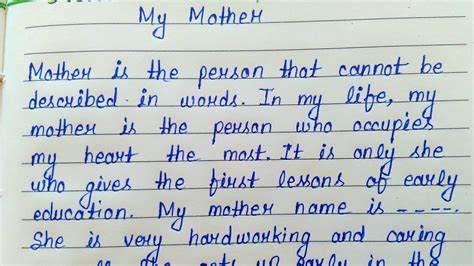 My Mother
Mother is the person that cannot be
described in words. In my life, my
mother is the person who occupies
my heart the most. It is only she
who gives the first lessons of early
education. My mother name is ----.
She is very hardworking and caring
up early in the